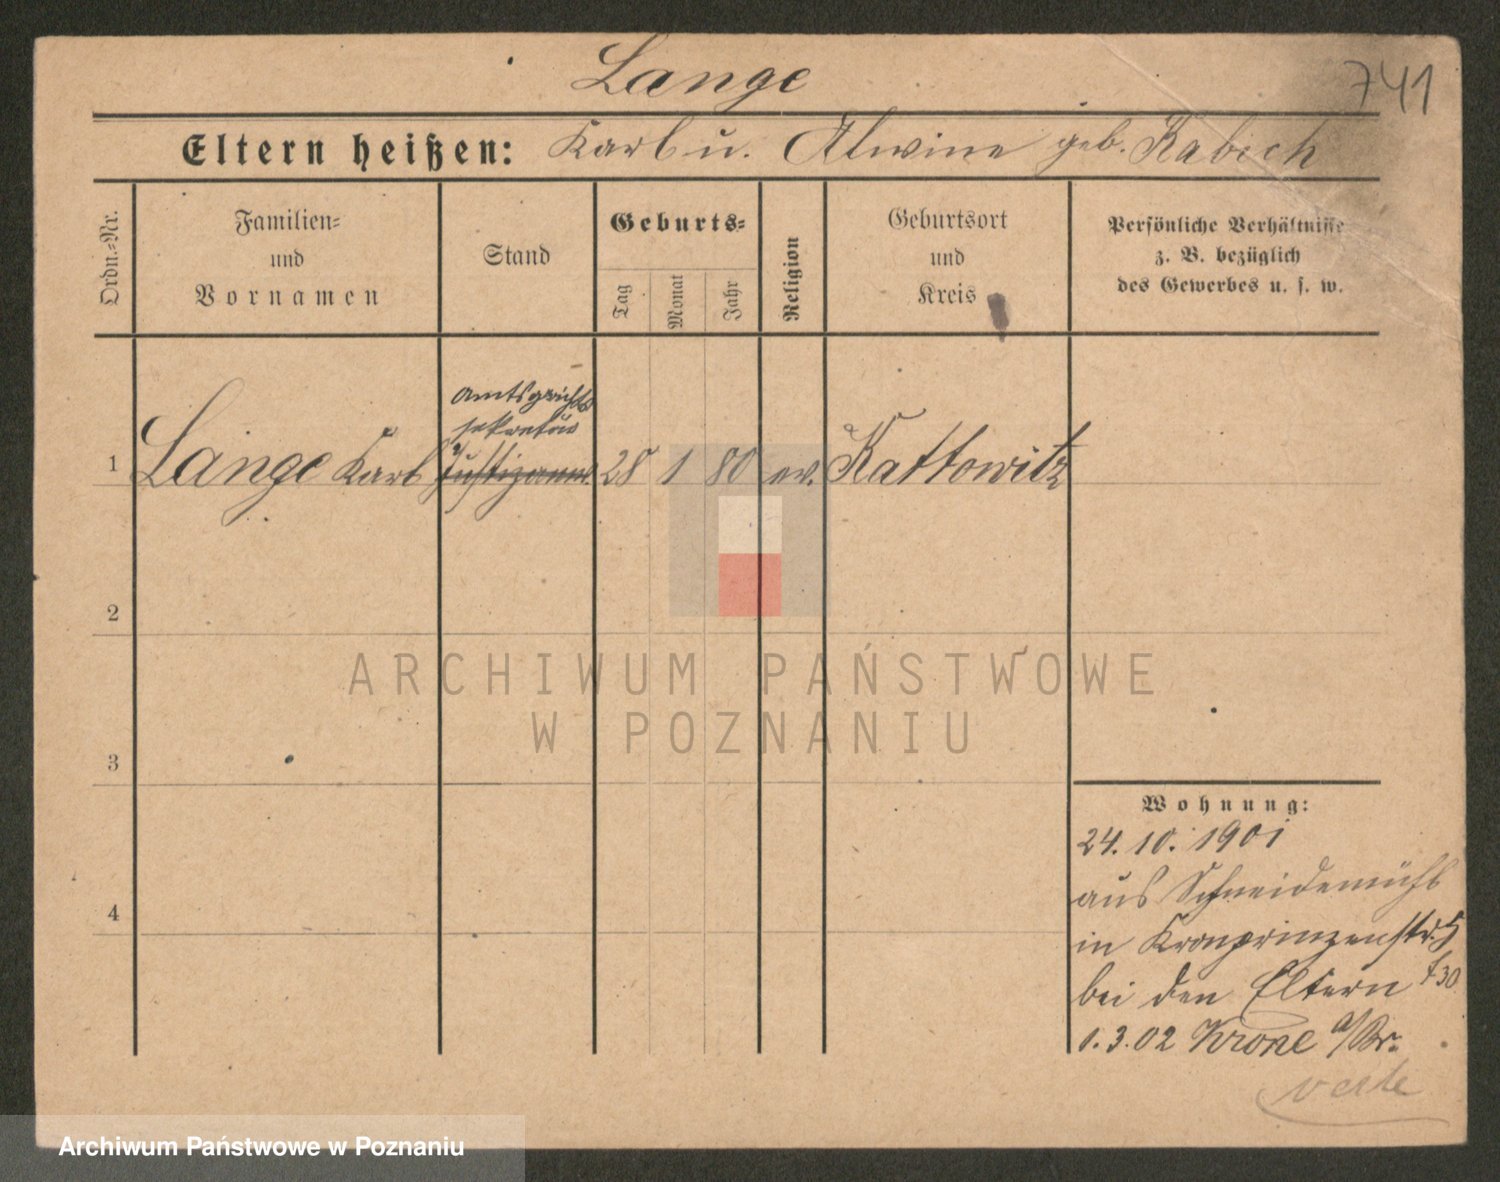 Lange
741
Eltern heißen: Karl u. Alwine geb. Kabisch
Ordn.-Nr.
Familien-
und
Vornamen
Stand
Geburts-
Tag
Monat
Jahr
Religion
Geburtsort
und
Kreis
Persönliche Verhältnisse
z. B. bezüglich
des Gewerbes u. s. w.
Amtsgerichts
sekretär
1 Lange Karl Justizanw. 28 1 80 ev. Kattowitz
2
3
4
Wohnung:
24. 10. 1901
aus Schneidemühl
in Kronprinzenstr.
bei den Eltern
1. 3. 02 Krone a/Br.
verte
ARCHIWUM PAŃSTWOWE
W POZNANIU
Archiwum Państwowe w Poznaniu